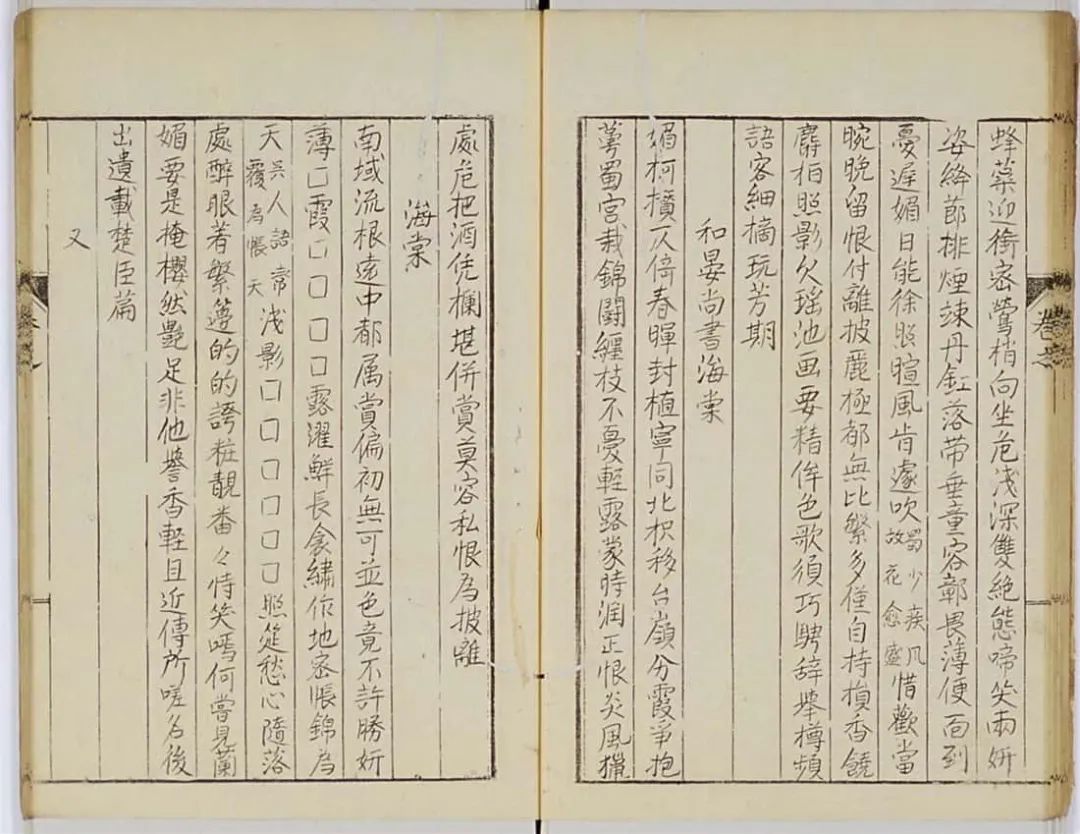 蜂蘂迎銜密鶯梢向坐危浅深雙絶態啼笑兩妍
姿絳節排煙竦丹釭落带垂童容郭畏薄便面到
憂遅媚日能徐照暄風肯遽吹蜀少疾風故花愈盛惜歡當
晼晩留恨付離披麗極都無比繁多僅自持損香饒
麝柏照影欠瑶池画要精侔色歌須巧騁辞举樽頻
語客细摘玩芳期
和晏尚書海棠
媚柯攢仄倚春暉封植寧同北枳移台嶺分霞爭抱
萼蜀宮栽錦鬪纏枝不憂軽露蒙時润正恨炎風獵
處危把酒凭欄堪併賞莫容私恨為披離
海棠
南域流根遠中都属賞偏初無可並色竟不許勝妍
薄□霞□□□□露濯鮮長衾繡作地密帳錦為
天吴人語帝覆為帳天浅影□□□□□□照筵愁心隨落
處醉眼著繁邊的的誇粧靚番々恃笑嫣何嘗見蘭
媚要是掩櫻然艶足非他譽香軽且近傳所嗟名後
出遺載楚臣篇
又
卷